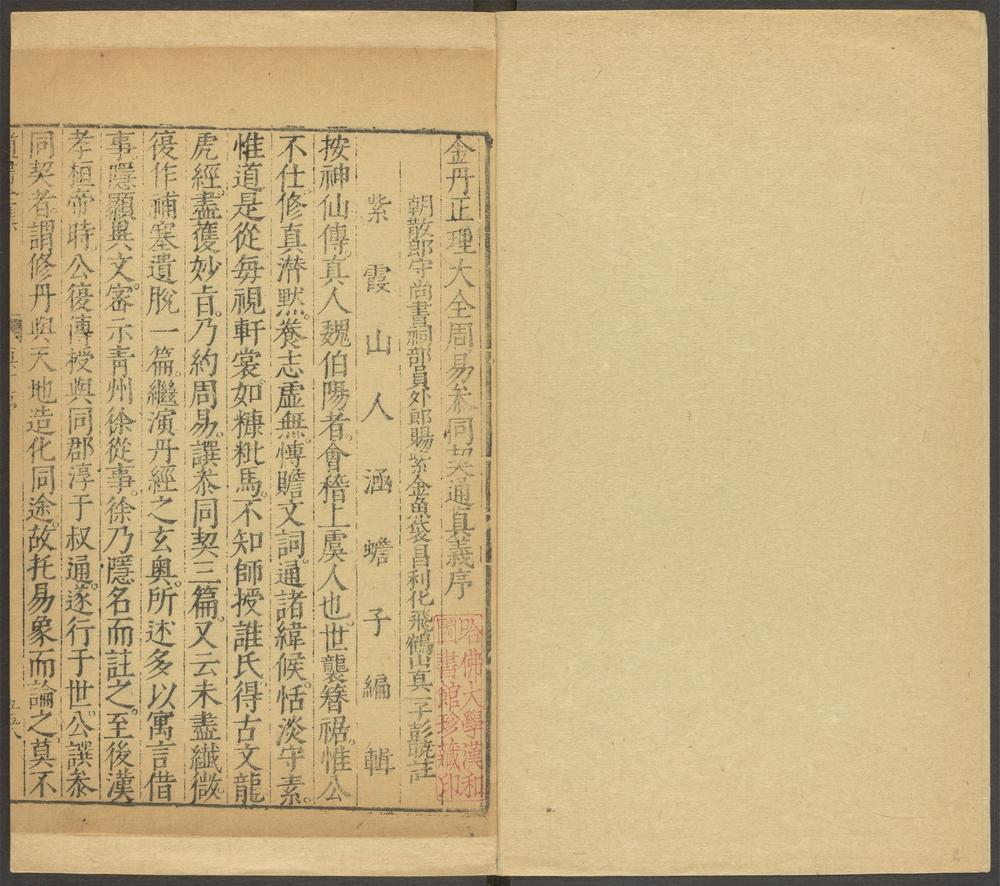 金丹正理大全周易叅同契通真義序
朝散郎守尚書祠部員外郎賜紫金魚袋昌利化飛鶴山真一子彭曉註
紫霞山人涵蟾子編輯
按神仙傳。真人魏伯陽者。會稽上虞人也。世襲簪裾。惟公
不仕。修真潛默。養志虛無。博贍文詞。通諸緯候。恬淡守素。
惟道是從。每視軒裳如糠粃焉。不知師授誰氏。得古文龍
虎經。盡獲妙旨。乃約周易。譔叅同契三篇。又云未盡纖微。
復作補塞遺脫一篇。繼演丹經之玄奧。所述多以寓言借
事。隱顯異文。密示青州徐從事。徐乃隱名而註之。至後漢
孝桓帝時。公復傳授與同郡淳于叔通。遂行于世。公譔叅
同契者。謂修丹與天地造化同途。故托易象而論之。莫不
哈佛大學漢和
圖書館珍藏印